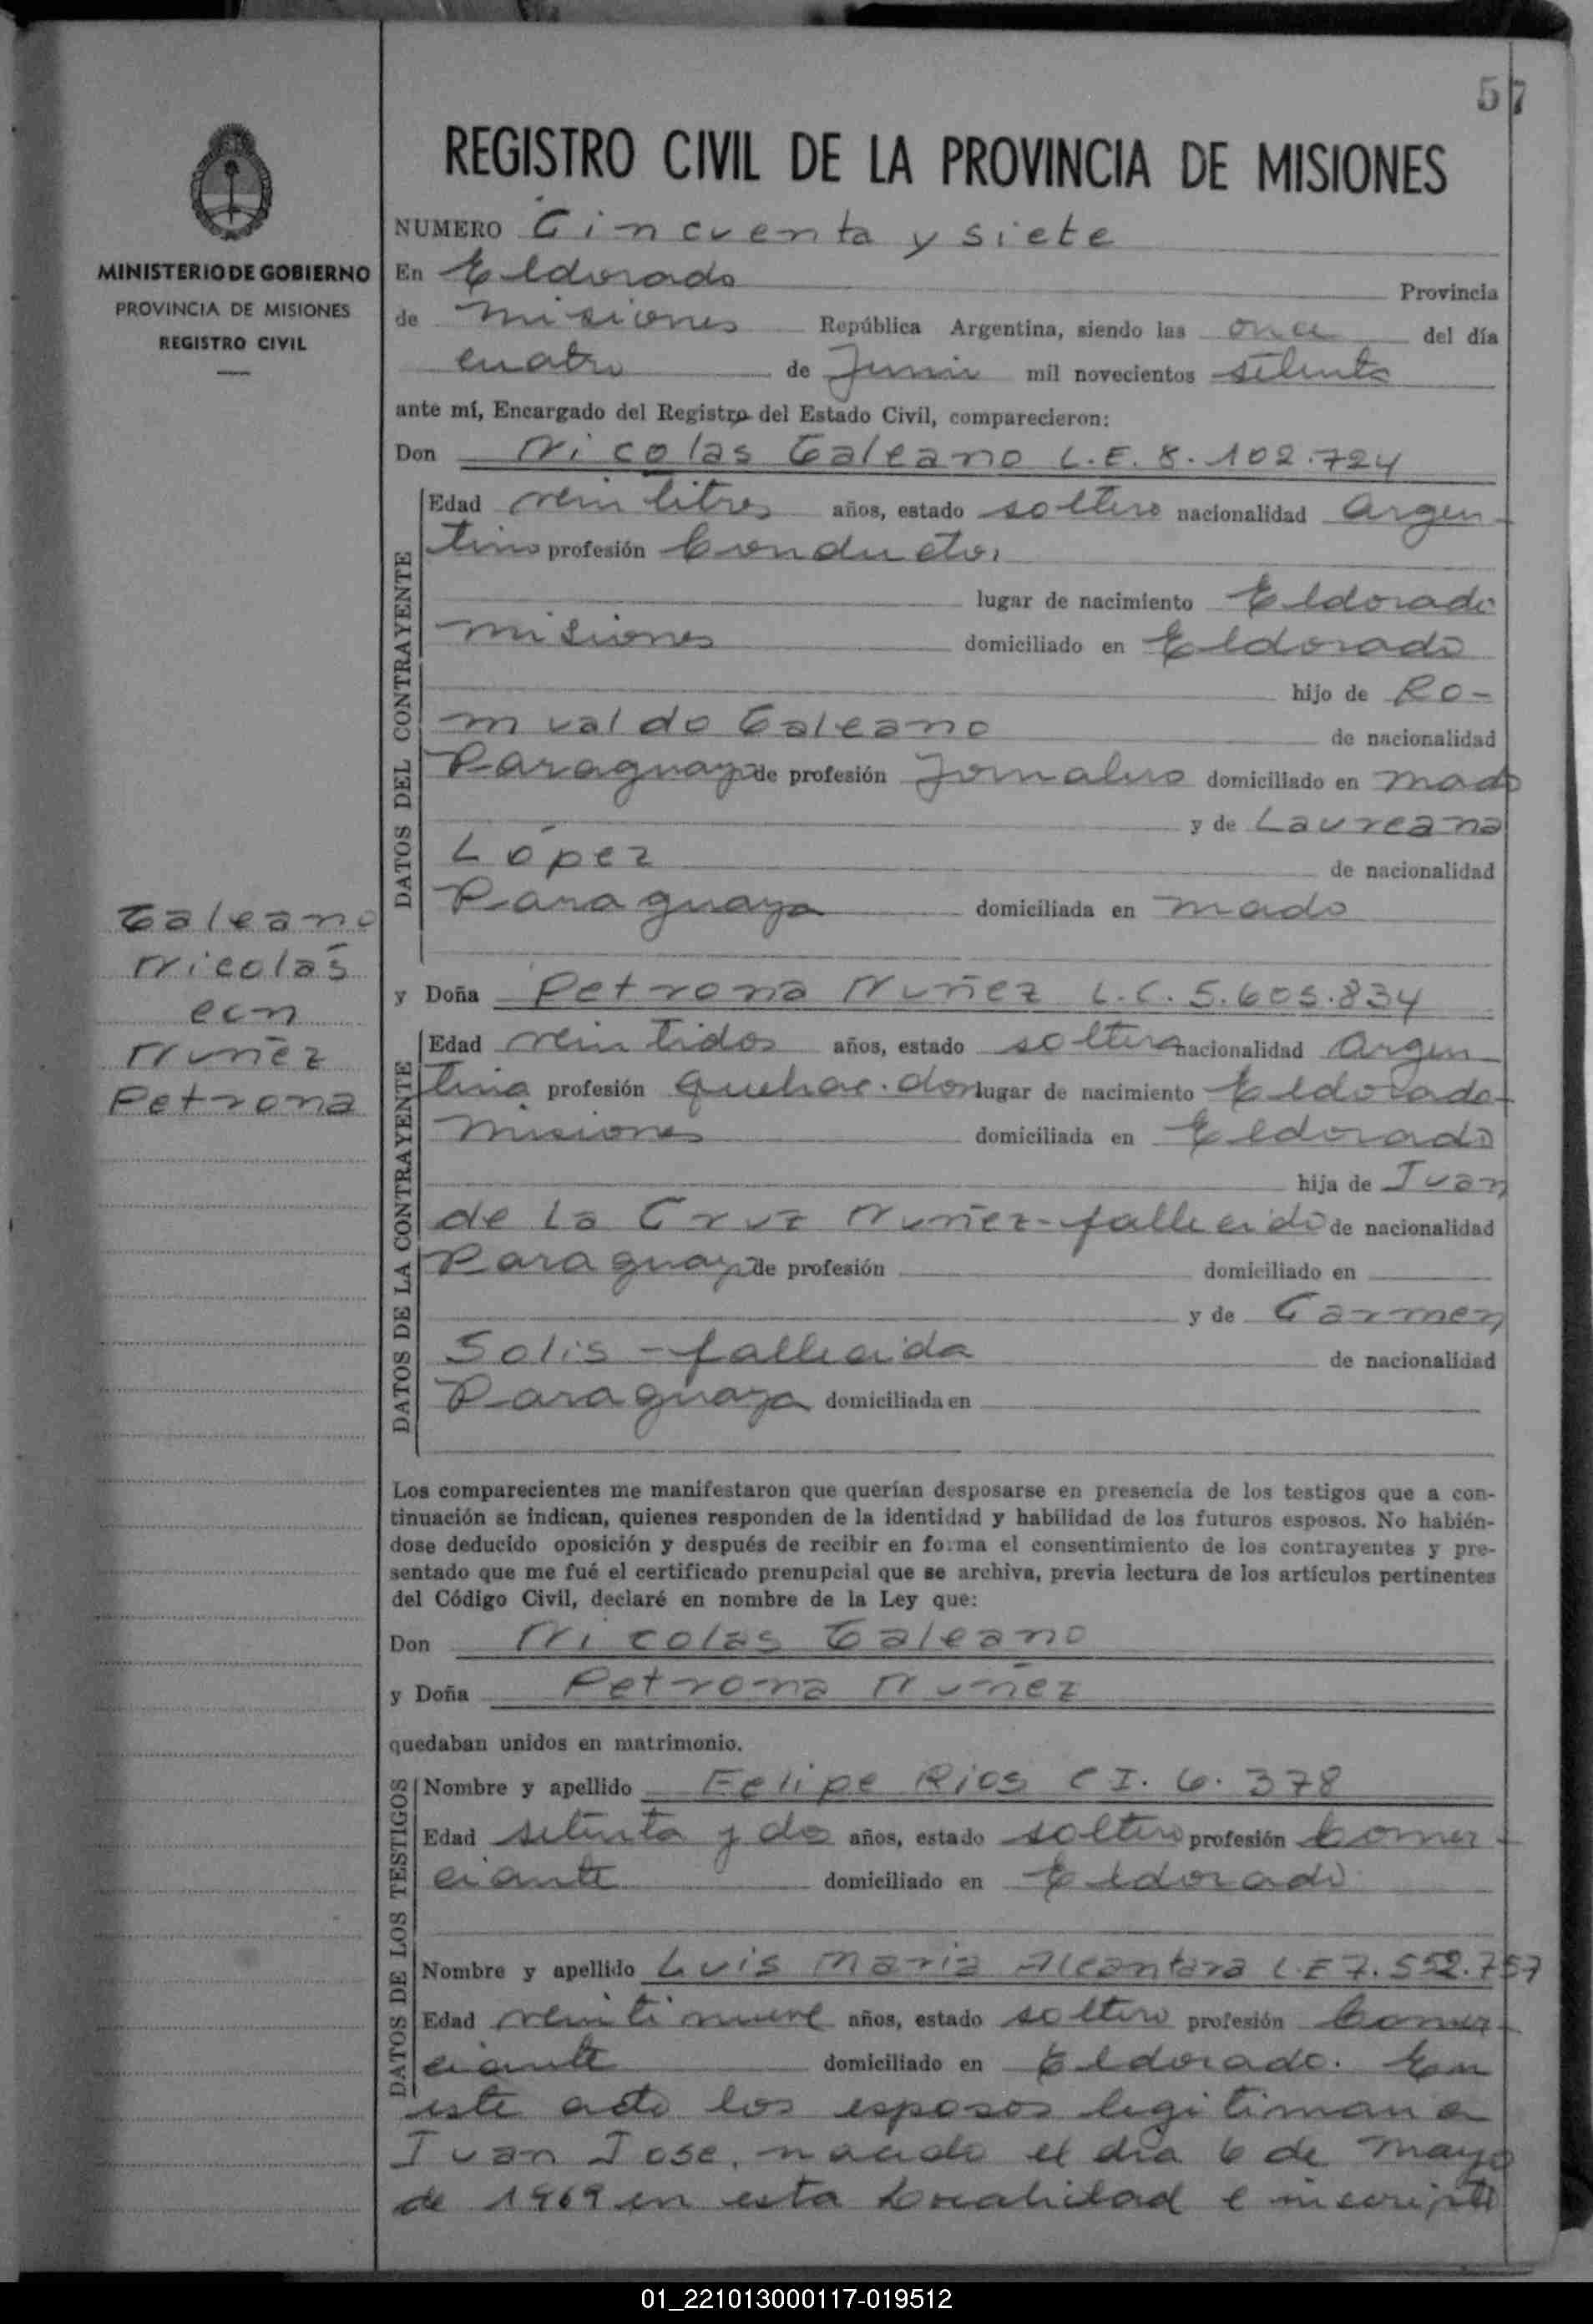 57
REGISTRO CIVIL DE LA PROVINCIA DE MISIONES
MINISTERIO DE GOBIERNO
PROVINCIA DE MISIONES
REGISTRO CIVIL
NUMERO Cincuenta y siete
En Eldorado Provincia
de Misiones República Argentina, siendo las once del día
cuatro de Junio mil novecientos setenta
ante mí, Encargado del Registro del Estado Civil, comparecieron:
Don Nicolas Galeano L.E. 8.102.724
DATOS DEL CONTRAYENTE
Edad veintitres años, estado soltero nacionalidad Argen-
tino profesión Conductor
lugar de nacimiento Eldorado
Misiones domiciliado en Eldorado
hijo de Ro-
mualdo Galeano de nacionalidad
Paraguayo de profesión Jornalero domiciliado en Mado
y de Laureana
López de nacionalidad
Paraguaya domiciliada en Mado
Galeano
Nicolás
con
Nuñez
Petrona
y Doña Petrona Nuñez L.C. 5.605.834
DATOS DE LA CONTRAYENTE
Edad veintidos años, estado soltera nacionalidad Argen
tina profesión Quehac. dom lugar de nacimiento Eldorado-
Misiones domiciliada en Eldorado
hija de Juan
de La Cruz Nuñez-fallecido de nacionalidad
Paraguayo de profesión domiciliado en
y de Carmen
Solis - fallecida de nacionalidad
Paraguaya domiciliada en
Los comparecientes me manifestaron que querían desposarse en presencia de los testigos que a con-
tinuación se indican, quienes responden de la identidad y habilidad de los futuros esposos. No habién-
dose deducido oposición y después de recibir en forma el consentimiento de los contrayentes y pre-
sentado que me fué el certificado prenupcial que se archiva, previa lectura de los artículos pertinentes
del Código Civil, declaré en nombre de la Ley que:
Don Nicolas Galeano
y Doña Petrona Nuñez
quedaban unidos en matrimonio.
DATOS DE LOS TESTIGOS
Nombre y apellido Felipe Rios C I. 6.378
Edad setenta y dos años, estado soltero profesión Comer-
ciante domiciliado en Eldorado
Nombre y apellido Luis Maria Alcantara L.E 7.552.757
Edad veintinueve años, estado soltero profesión Comer-
ciante domiciliado en Eldorado. En
este acto los esposos legitiman a
Juan Jose, nacido el dia 6 de Mayo
de 1969 en esta Localidad e inscripto
01_221013000117-019512